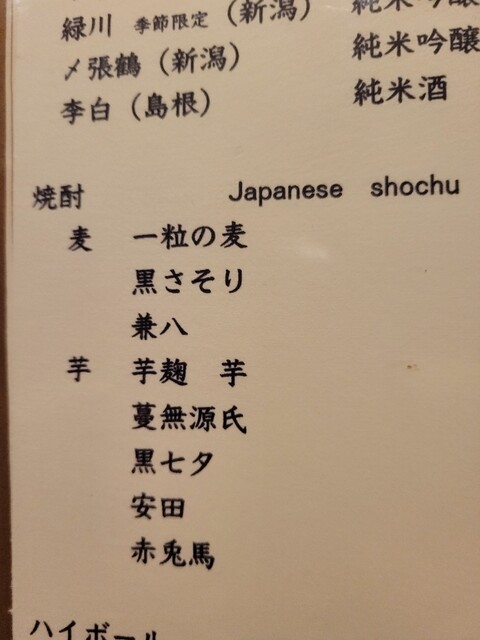 緑川 季節限定 (新潟) 純米吟醸
〆張鶴 (新潟) 純米吟醸
李白 (島根) 純米酒
焼酎 Japanese shochu
麦 一粒の麦
黒さそり
兼八
芋 芋麹 芋
蔓無源氏
黒七夕
安田
赤兎馬
ハイボール